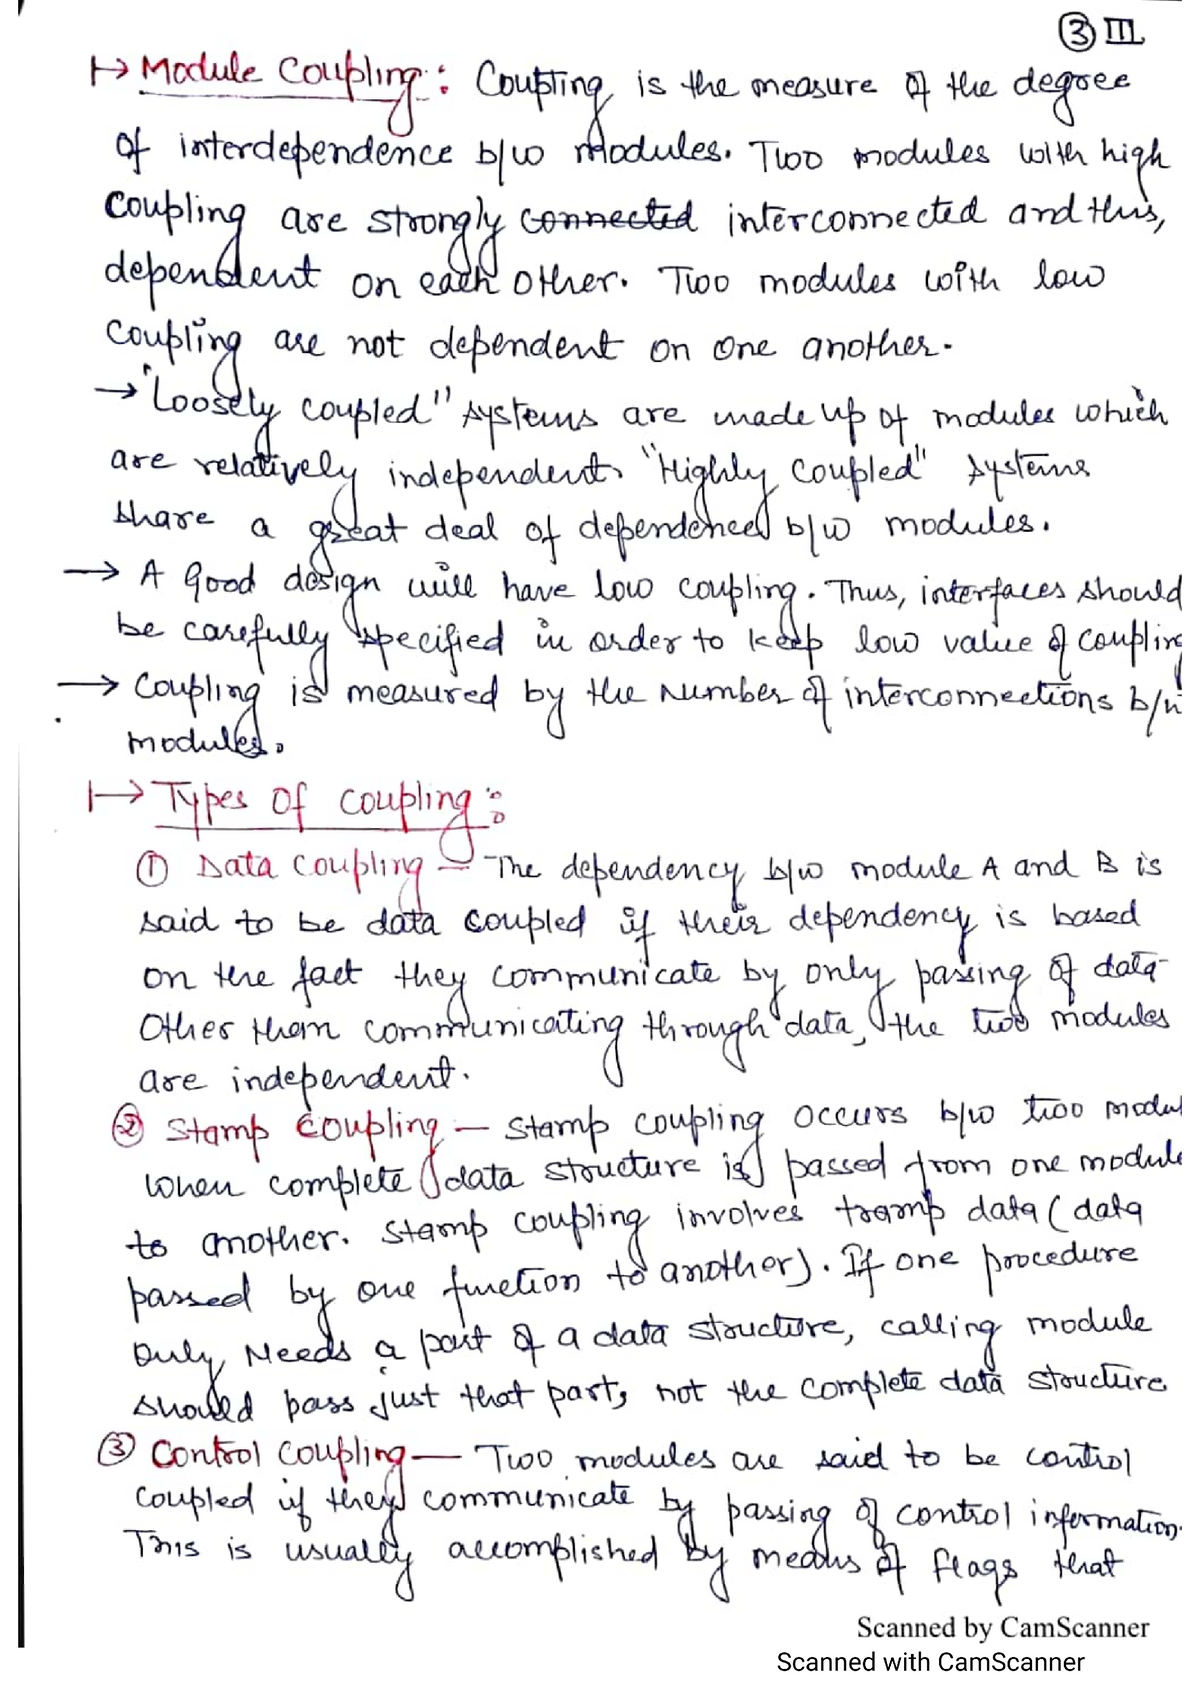 ③ III
↦ Module Coupling : Coupting is the measure of the degree
of interdependence b/w modules. Two modules with high
coupling are strongly connected interconnected and this,
dependent on each other. Two modules with low
coupling are not dependent on one another.
→ "Loosely coupled" systems are made up of modules which
are relatively independent. "Highly coupled" systems
share a great deal of dependence b/w modules.
→ A good design will have low coupling. Thus, interfaces should
be carefully specified in order to keep low value of coupling
→ Coupling is measured by the number of interconnections b/w
modules.
↦ Types of coupling :
① Data coupling – The dependency b/w module A and B is
said to be data coupled if their dependency is based
on the fact they communicate by only passing of data.
Other than communicating through data, the two modules
are independent.
② Stamp coupling – Stamp coupling occurs b/w two modul
when complete data structure is passed from one module
to another. Stamp coupling involves tramp data (data
passed by one function to another). If one procedure
only needs a part of a data structure, calling module
should pass just that part, not the complete data structure
③ Control coupling – Two modules are said to be control
coupled if they communicate by passing of control information.
This is usually accomplished by means of flags that
Scanned by CamScanner
Scanned with CamScanner